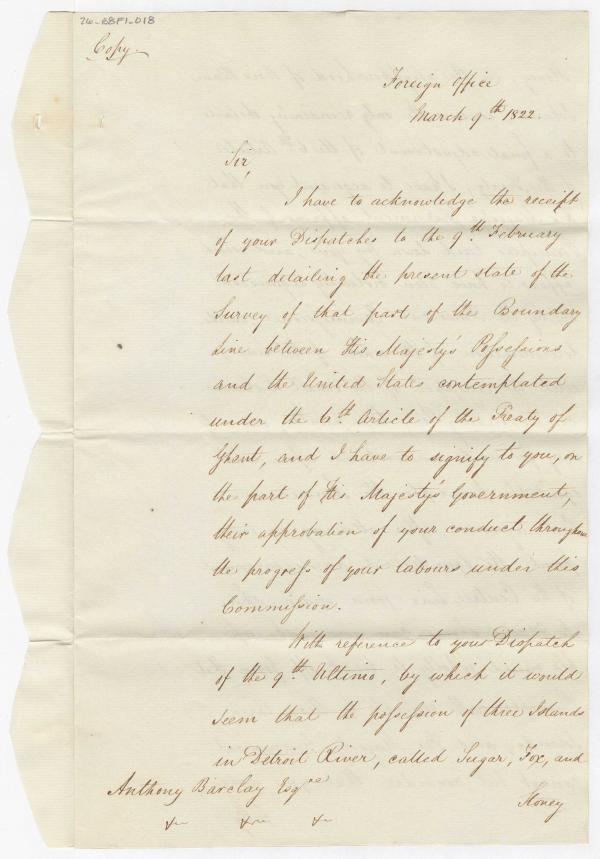 26-B8F1-018
Copy.
Foreign Office
March 9th 1822.
Sir,
I have to acknowledge the receipt
of your Dispatches to the 9th February
last detailing the present state of the
Survey of that part of the Boundary
Line between His Majesty's Possessions
and the United States contemplated
under the 6th Article of the Treaty of
Ghent, and I have to signify to you, on
the part of His Majesty's Government,
their approbation of your conduct throughout
the progress of your labours under this
Commission.
With reference to your Dispatch
of the 9th Ultimo, by which it would
seem that the possession of three Islands
in Detroit River, called Sugar, Fox, and
Anthony Barclay Esqre
Stoney